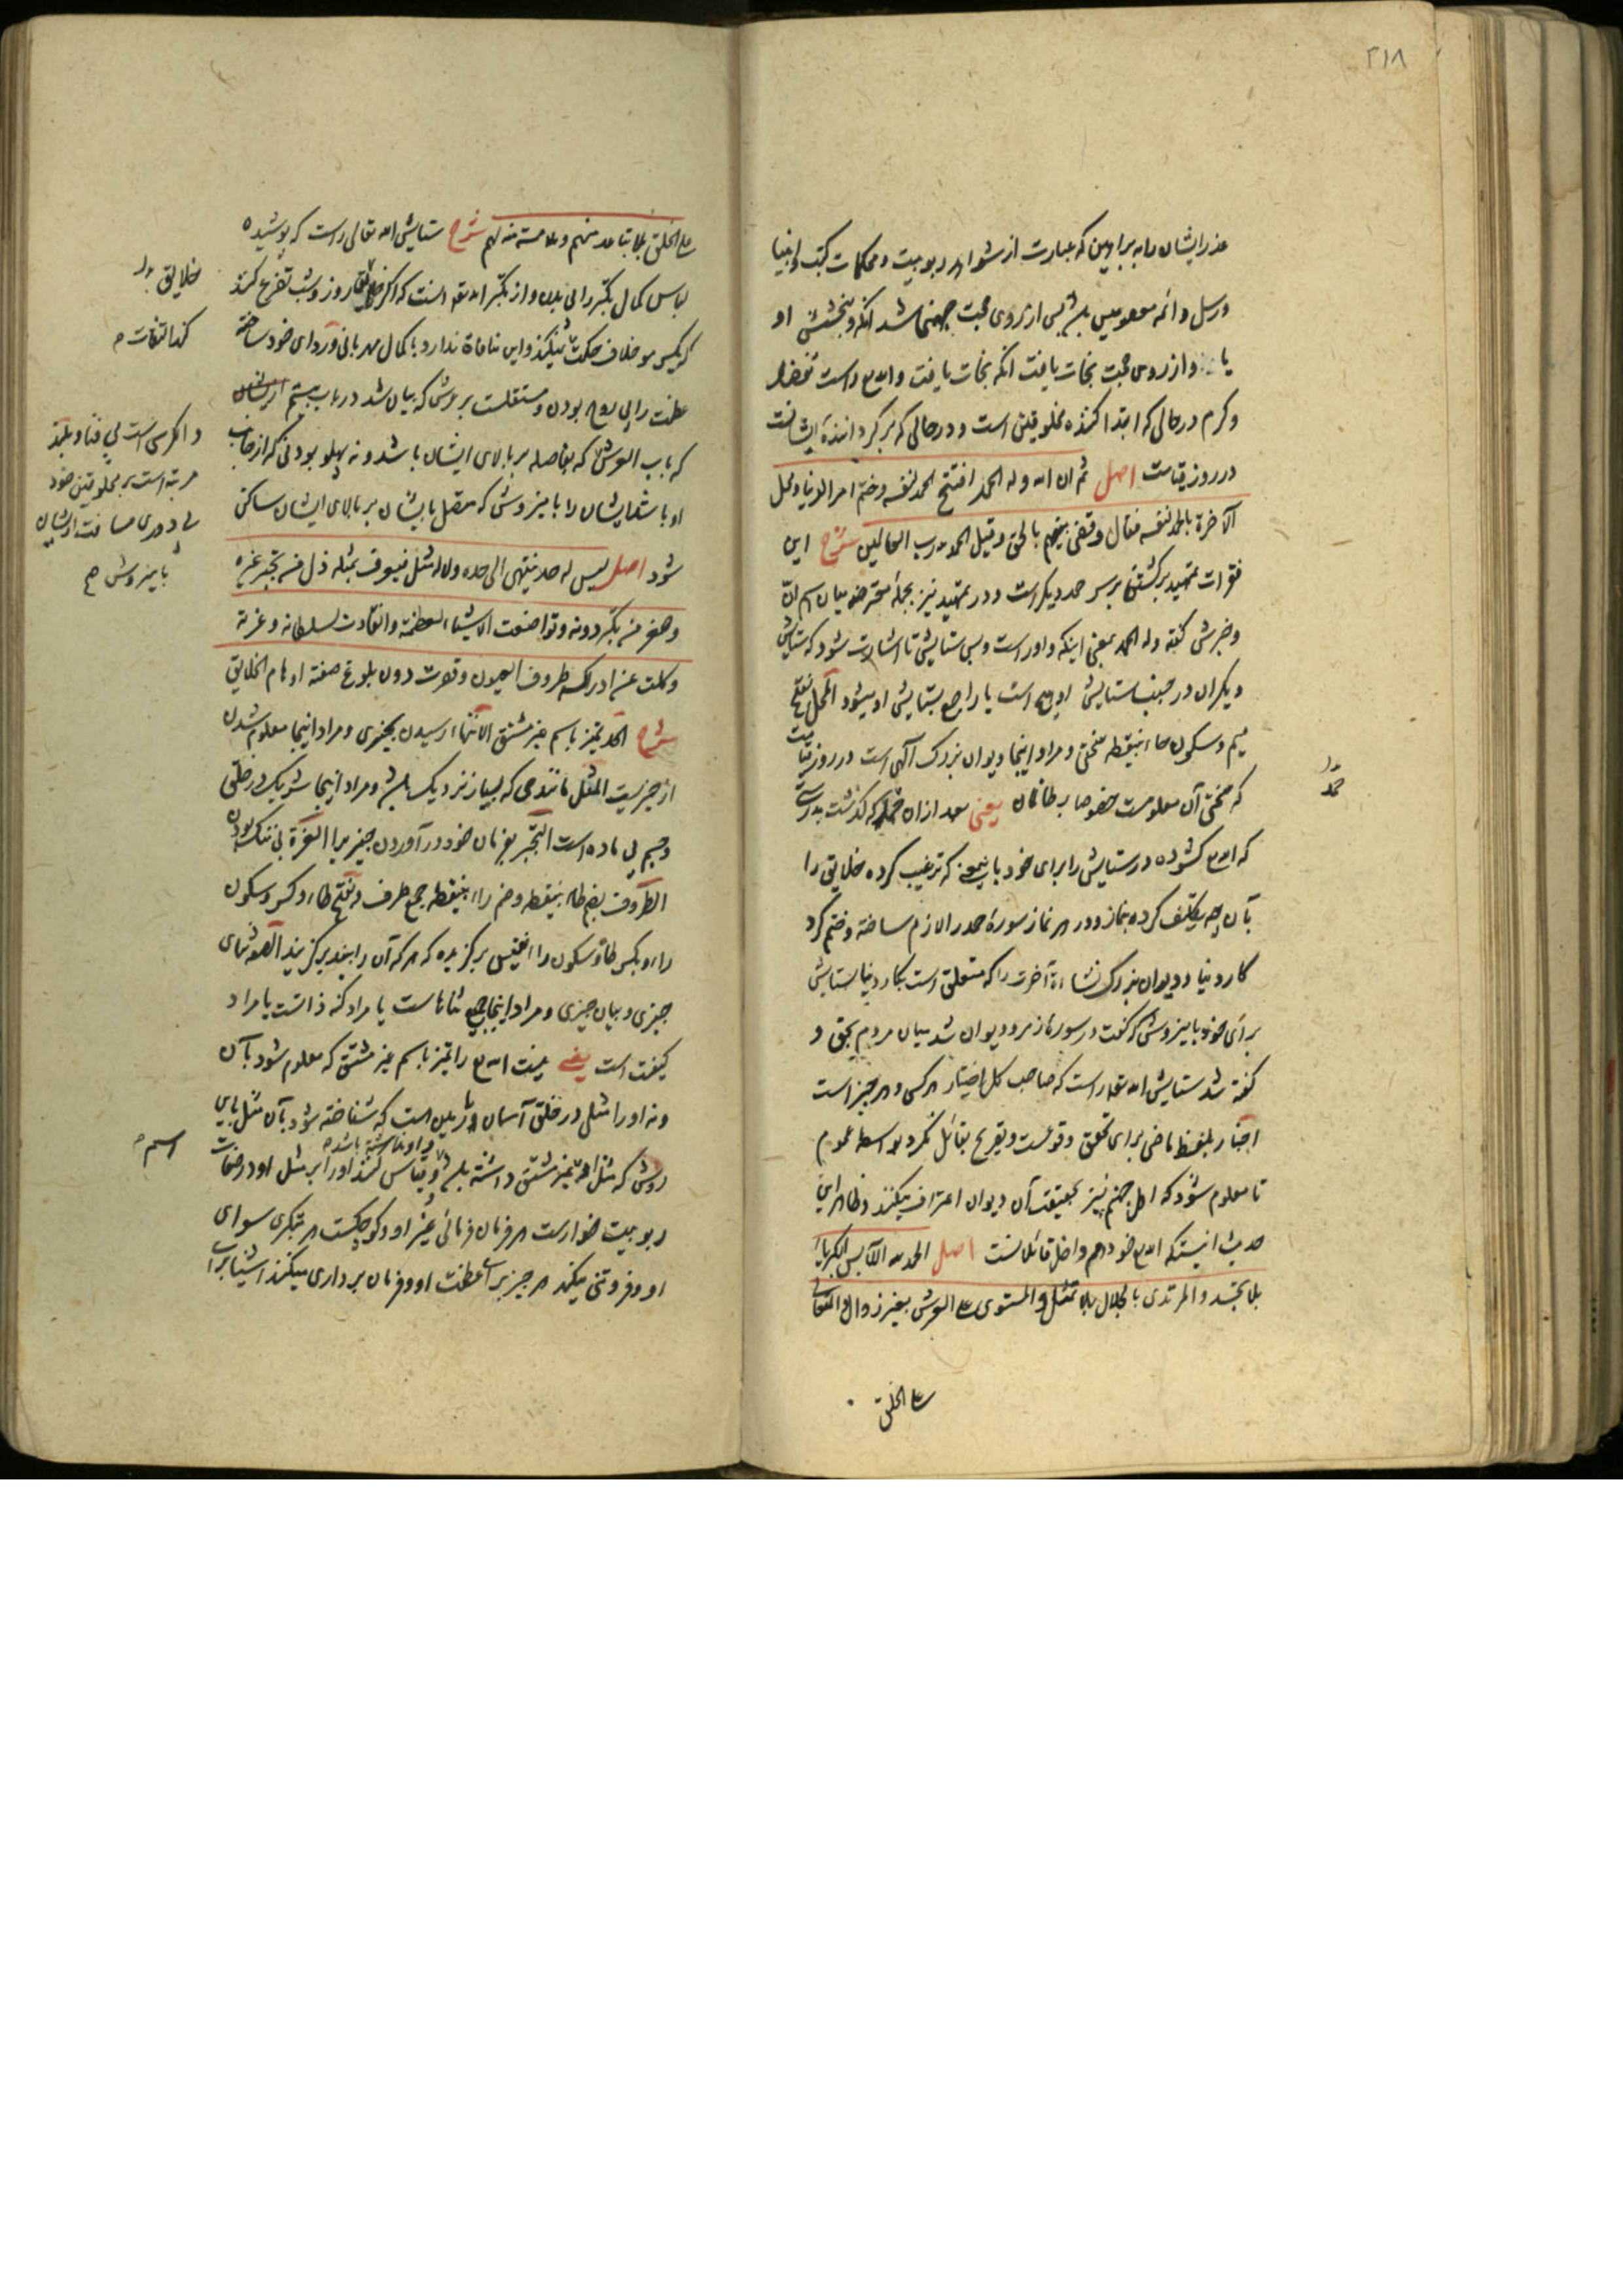 ۳۱۸
عذر ایشان را به براهین که عبارت از شواهد ربوبیت و محکمات کتب و انبیا
و رسل و ائمه معصومین باشد پس از روی حجت جهنمی شد آنکه و بخشش او
یا و از روی حجت نجات یافت آنکه نجات یافت و الله راست تفضل
و کرم در حالی که ابتدا کننده مخلوقین است و در حالی که برگرداننده ایشانست
در روز قیامت اصل ثم ان الله وله الحمد افتتح الحمد لنفسه وختم امر الدنیا ومحل
الآخرة بالحمد لنفسه فقال وقضی بینهم بالحق وقیل الحمد لله رب العالمین شرح این
فقرات تمهید برگشتن بر سر حمد دیگر است و در تمهید نیز بجمله معترضه میان اسم انّ
و خبرش گفته وله الحمد بمعنی اینکه و اوراست و بس ستایش تا اشارت شود که ستایش
دیگران در جنب ستایش او هیچ است یا راجع بستایش او میشود المحل بفتح
میم و سکون حاء بینقطه سختی و مراد اینجا دیوان بزرگ الهی است در روز قیامت
که سختی آن معلومست خصوصا بر ظالمان یعنی بعد از ان حمد که گذشت بدرستی
حمد
که الله گشوده در ستایش را برای خود باین معنی که ترغیب کرده خلایق را
بآن چه تکلیف کرده بنماز و در هر نماز سوره حمد را لازم ساخته و ختم کرد
کار دنیا و دیوان بزرگ نشاءة آخرت را که متعلق است بکار دنیا ستایش
برای خود باین روش که گفت در سوره زمر و دیوان شد میان مردم بحق و
گفته شد ستایش الله راست که صاحب کل اختیار هر کس و هر چیز است
اخبار بلفظ ماضی برای تحقق وقوعست و تصریح بقائل نکرد بواسطه عموم
تا معلوم شود که اهل جهنم نیز بحقیقت آن دیوان اعتراف میکنند و ظاهر این
حدیث اینستکه الله خود هم داخل قائلانست اصل الحمد لله اللابس الکبریاء
بلا تجسد والمرتدی بالجلال بلا تمثل والمستوی علی العرش بغیر زوال والمتعالی
علی الخلق
علی الخلق بلا تباعد منهم ولا ملامسة منه لهم شرح ستایش الله تعالی راست که پوشیده
لباس کمال تکبر را بی بدن و از تکبر الله است که اگر خلایق روز و شب تضرع کنند
خلایق
که یکسر مو خلاف حکمت نمیکند و این منافاة ندارد با کمال مهربانی و ردای خود ساخته
کند التفات
عظمت را بی روح بودن و مستقلست بر عرش که بیان شد در باب بیستم
و اکرسی است بی فنا و بلند
که باب العرش که بفاصله بر بالای ایشان باشد و نه پهلو بودنی که از جانب
مرتبه است بر مخلوقین خود
او باشد ایشان را باین روش که متصل بایشان بر بالای ایشان ساکن
بی دوری مسافت از ایشان
باین روش
شود اصل لیس له حد ینتهی الی حده ولا له مثل فیعرف بمثله ذل من تجبر غیره
وصغر من تکبر دونه وتواضعت الاشیاء لعظمته وانقادت لسلطانه وعزته
وکلت عن ادراکه طروف العیون وقصرت دون بلوغ صفته اوهام الخلایق
شرح الحد تمیز باسم غیر مشتق الانتهاء رسیدن بچیزی و مراد اینجا معلوم شدن
از چیزیست المثل مانندی که بسیار نزدیک باشد و مراد اینجا شریک در خلق
جسم بی ماده است التجبر بفرمان خود در آوردن چیزیرا العزة بی ننگ بودن
الطروف بضم طاء بینقطه و ضم راء بینقطه جمع طرف بفتح طاء و کسر و سکون
راء و بکسر طا و سکون را نفیس برگزیده که هر که آن را بیند برگزیند الصفة ثنای
چیزی و بیان چیزی و مراد اینجا جمیع ثناهاست یا مراد کنه ذاتست یا مراد
کیفیت است یعنی نیست الله را تمیز باسم غیر مشتق که معلوم شود بآن
و نه او را مثلی در خلق آسمان و زمین است که شناخته شود بآن مثل باین
اسم
روش که مثل او تمیز مشتق داشته باشد و قیاس کنند او را بر مثل او در صفات
ربوبیت خوارست هر فرمان فرمائی غیر او و کوچکست هر متکبری سوای
او و فروتنی میکند هر چیز برای عظمت او و فرمان برداری میکنند اشیا برای